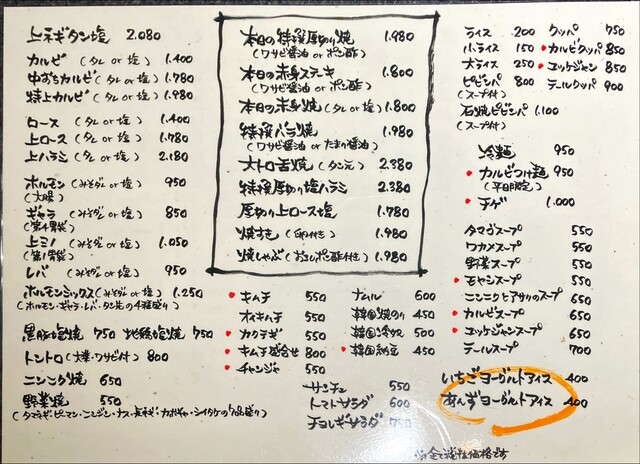 上ネギタン塩 2.080
カルビ (タレ or 塩) 1.400
中おちカルビ (タレ or 塩) 1.780
特上カルビ (タレ or 塩) 1.980
ロース (タレ or 塩) 1.400
上ロース (タレ or 塩) 1.780
上ハラミ (タレ or 塩) 2.180
ホルモン (みそダレ or 塩) 950
(大腸)
ギャラ (みそダレ or 塩) 850
(第4胃袋)
上ミノ (みそダレ or 塩) 1.050
(第1胃袋)
レバ (みそダレ or 塩) 950
ホルモンミックス (みそダレ or 塩) 1.250
(ホルモン・ギャラ・レバ・タン先の4種盛り)
黒豚塩焼 750 地鶏塩焼 750
トントロ (大葉・ワサビ付) 800
ニンニク焼 650
野菜焼 550
(タマネギ・ピーマン・ニンジン・ナス・長ネギ・カボチャ・シイタケの7品盛り)
本日の特撰厚切り焼 1.980
(ワサビ醤油 or ポン酢)
本日の赤身ステーキ 1.800
(ワサビ醤油 or ポン酢)
本日の赤身焼 (タレ or 塩) 1.800
特撰バラ焼 1.980
(ワサビ醤油 or たまり醤油)
大トロ舌焼 (タン元) 2.380
特撰厚切り塩ハラミ 2.380
厚切り上ロース塩 1.780
焼すき (卵付き) 1.980
焼しゃぶ (おろしポン酢付き) 1.980
キムチ 550
オイキムチ 550
カクテギ 550
キムチ盛合せ 800
チャンジャ 550
ナムル 600
韓国のり 450
韓国冷奴 500
韓国納豆 450
サンチュ 550
トマトサラダ 600
チョレギサラダ 750
ライス 200
小ライス 150
大ライス 250
ビビンバ 800
(スープ付)
石焼ビビンバ 1.100
(スープ付)
クッパ 750
カルビクッパ 850
ユッケジャン 850
テールクッパ 900
冷麺 950
カルビつけ麺 950
(平日限定)
チゲ 1.000
タマゴスープ 550
ワカメスープ 550
野菜スープ 550
モヤシスープ 550
ニンニクとアサリのスープ 650
カルビスープ 650
ユッケジャンスープ 650
テールスープ 700
いちごヨーグルトアイス 400
あんずヨーグルトアイス 400
※全て税込価格です